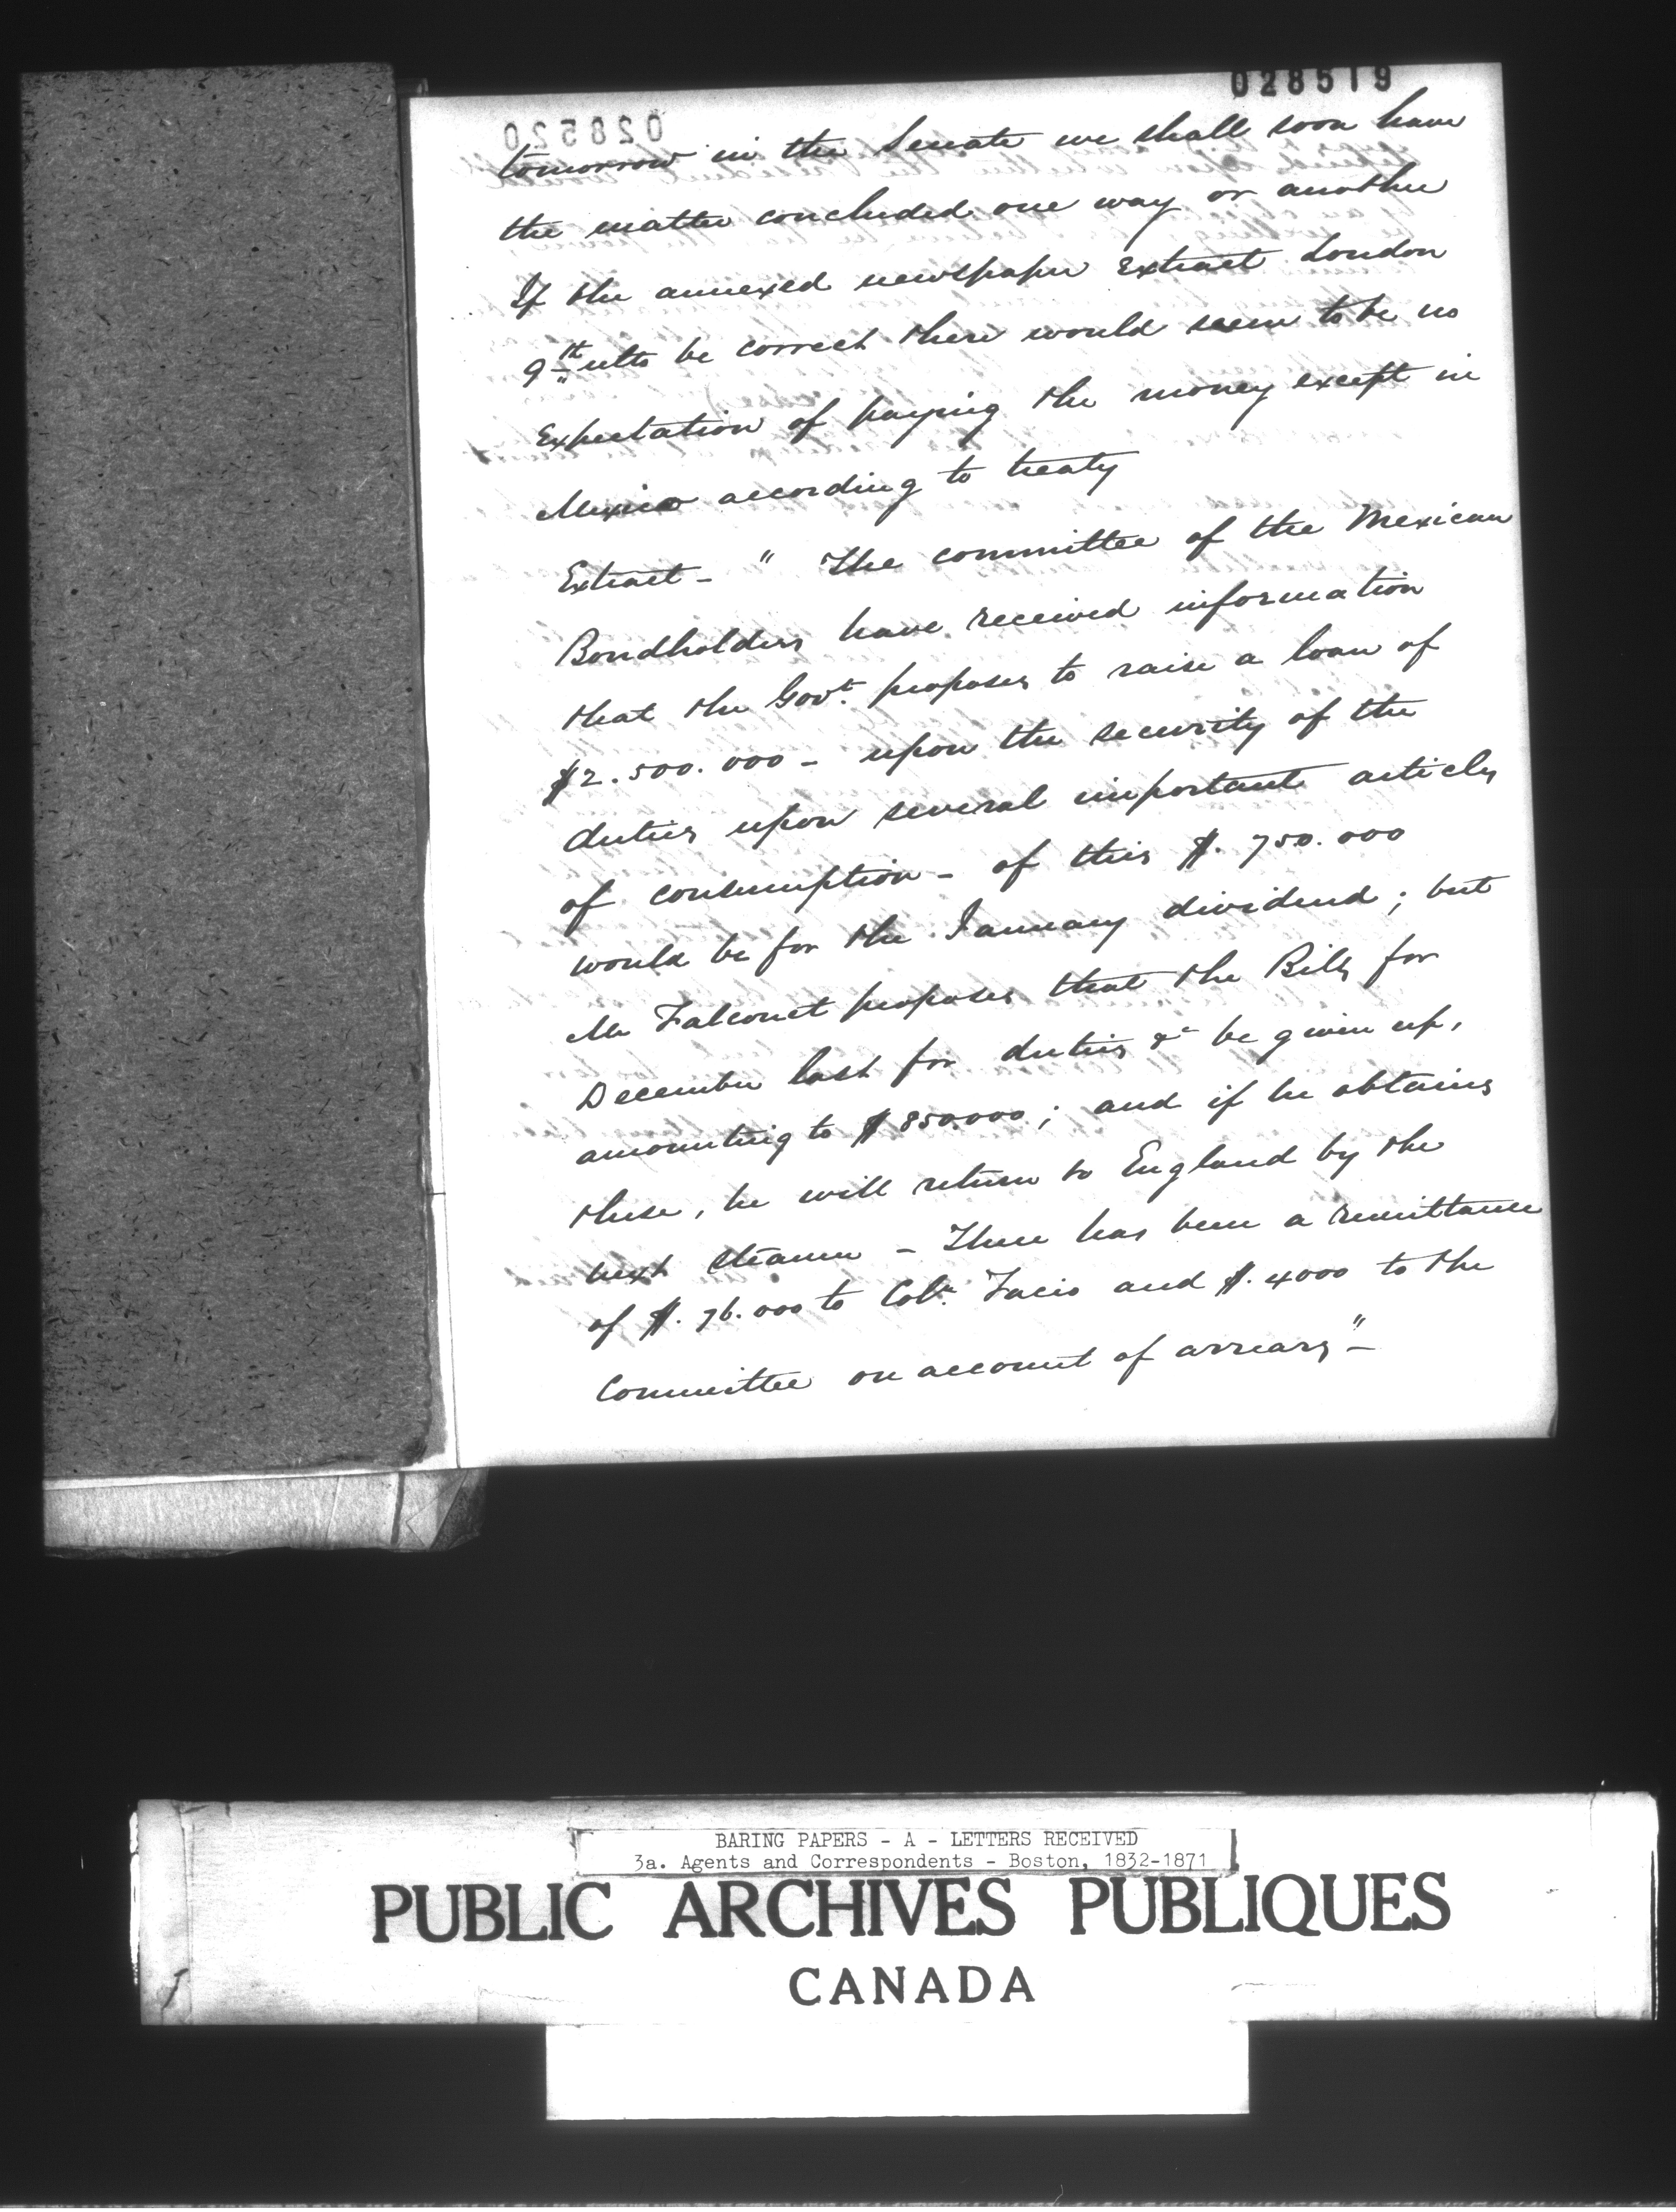 028519
028520
tomorrow in the Senate we shall soon have
the matter concluded one way or another
If the annexed newspaper extract London
9th ulto be correct there would seem to be no
expectation of paying the money except in
Mexico according to treaty
Extract - " The committee of the Mexican
Bondholders have received information
that the Govt. proposes to raise a loan of
$2.500.000 - upon the security of the
duties upon several important articles
of consumption - of this $. 750.000
would be for the January dividend ; but
Mr Falconet proposes that the Bills for
December last for duties &c be given up,
amounting to $850.000 ; and if he obtains
these, he will return to England by the
next steamer - There has been a remittance
of $. 76.000 to Facio and $. 4000 to the
Committee on account of arrears" -
BARING PAPERS - A - LETTERS RECEIVED
3a. Agents and Correspondents - Boston, 1832-1871
PUBLIC ARCHIVES PUBLIQUES
CANADA